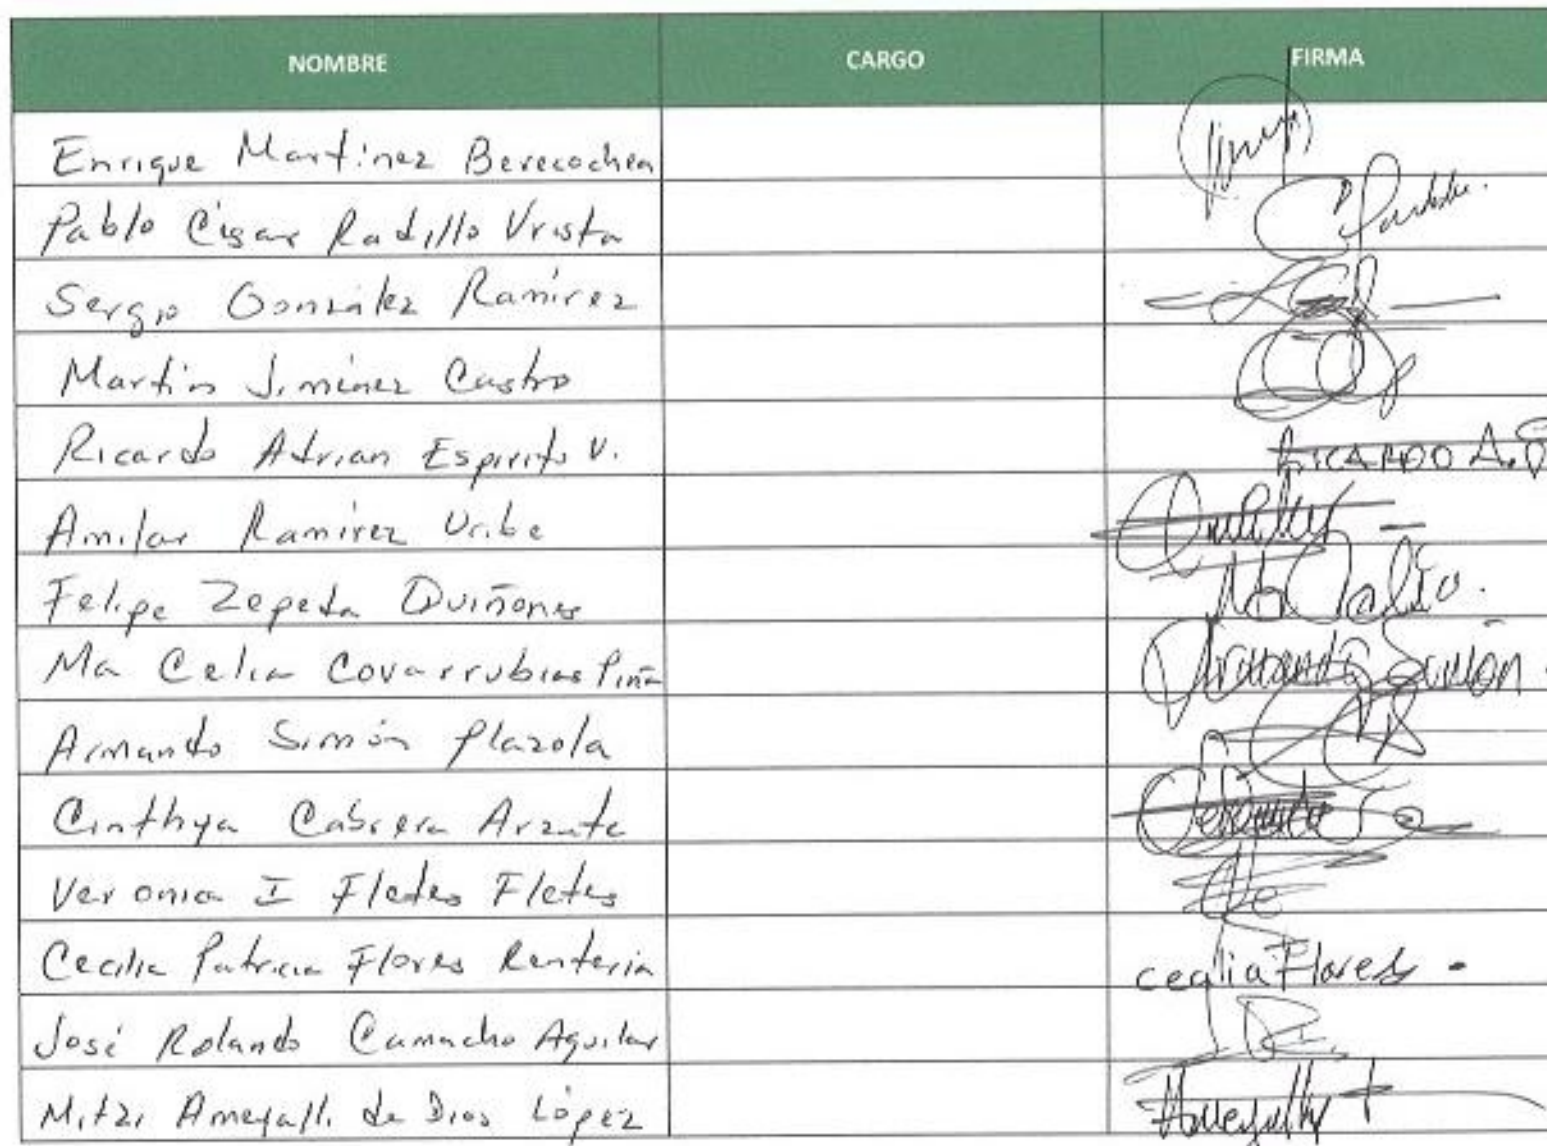 NOMBRE CARGO FIRMA
Enrique Martínez Berecochea
Pablo César Radillo Urista
Sergio González Ramírez
Martín Jiménez Castro
Ricardo Adrian Espirito V. RICARDO A.
Amilar Ramírez Uribe
Felipe Zepeda Quiñones Ma Celia
Ma Celia Covarrubias Piña Armando Simón
Armando Simón Plazola
Cinthya Cabrera Arzate
Veronica I Fletes Fletes
Cecilia Patricia Flores Renteria cecilia Flores
José Rolando Camacho Aguilar
Mitzi Ameyalli de Dios López